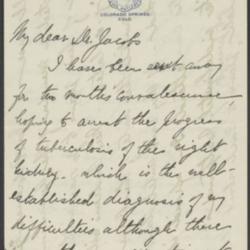 COLORADO SPRINGS,
COLO.
My dear Mr. Jacobs
I have been sent away
for two months convalescence,
hoping to arrest the progress
of tuberculosis of the right
kidney. which is the well-
established diagnosis of my
difficulties although there